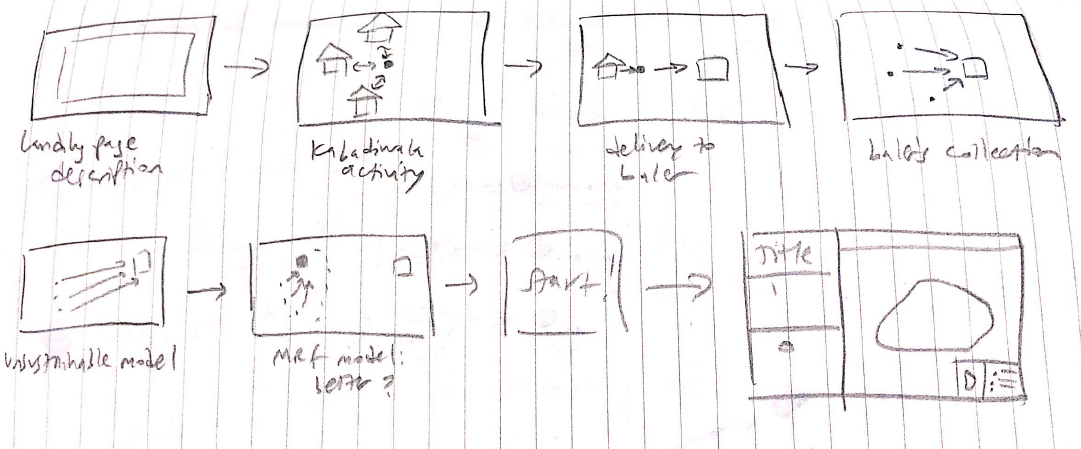 Landing page
description
Kabadiwala
activity
delivery to
baler
baler's collection
unsustainable model
MRF model:
better?
Start!
Title
D